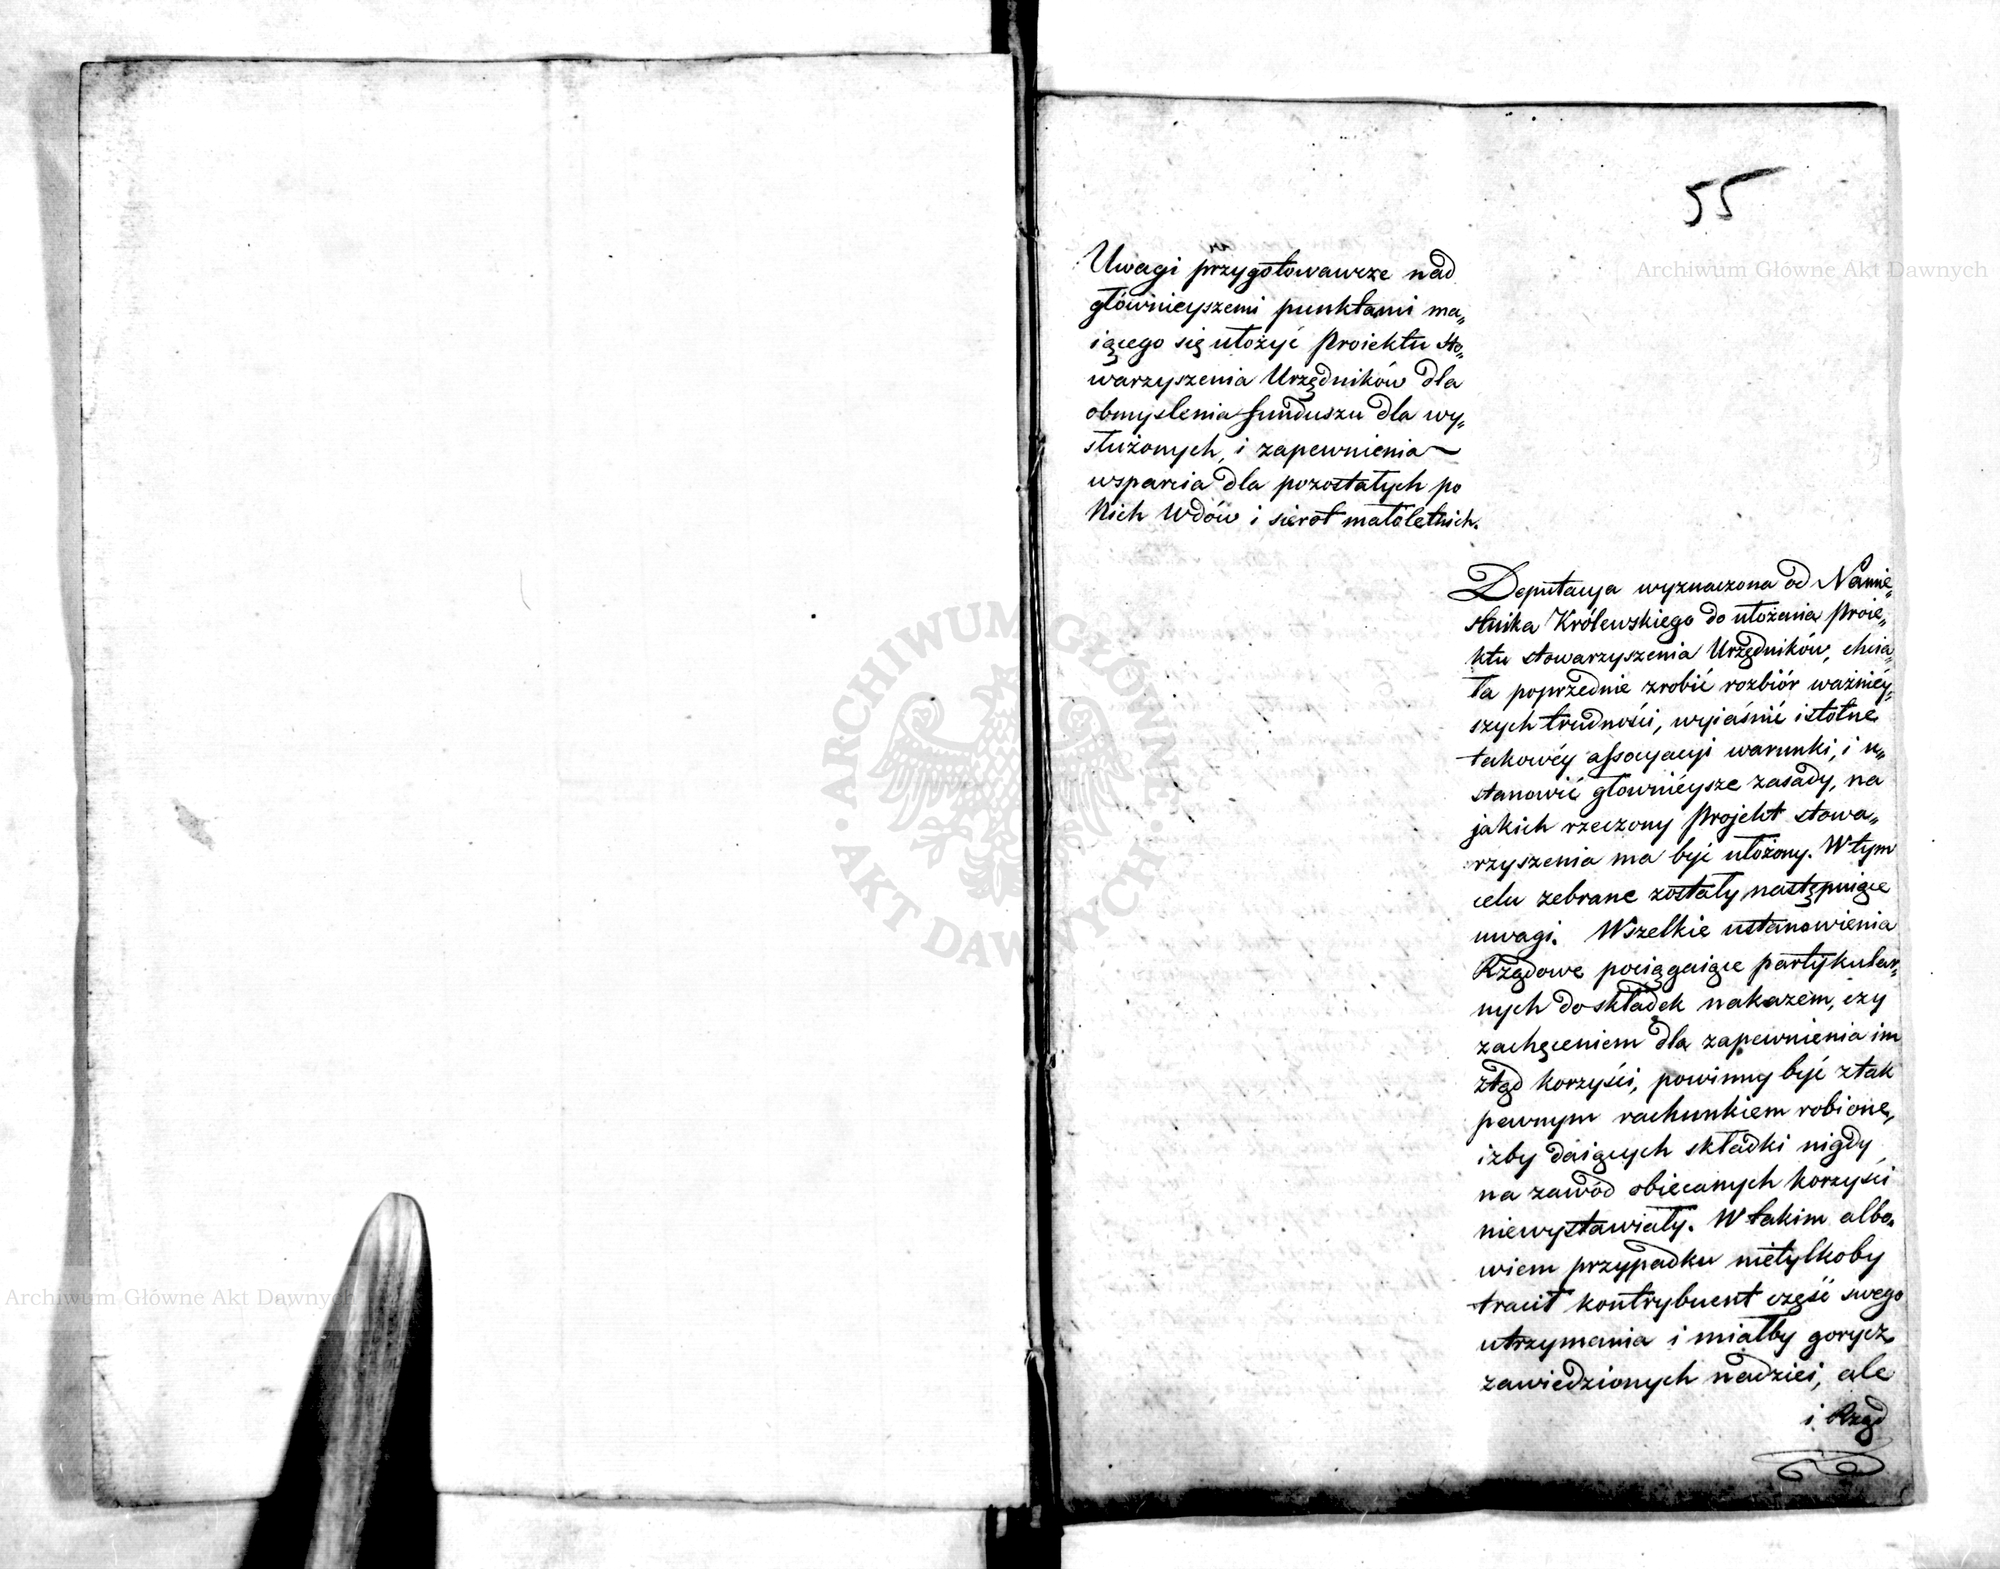 55
Uwagi przygotowawcze nad
głównieyszemi punktami ma„
iącego się ułożyć Proiektu Sto„
warzyszenia Urzędników dla
obmyslenia funduszu dla wy„
służonych, i zapewnienia
wsparcia dla pozostałych po
Nich Wdów i sierot małoletnich.
Deputacya wyznaczona od Namie„
stnika Królewskiego do ułożenia Proie„
ktu stowarzyszenia Urzędników, chcia„
ła poprzednie zrobić rozbiór ważniéy„
szych trudności, wyiaśnić istotne
takowéy assocyacyi warunki, i u„
stanowić głowniéysze zasady, na
jakich rzeczony Projekt stowa„
rzyszenia ma być ułożony. W tym
celu zebrane zostały następuiące
uwagi. Wszelkie ustanowienia
Rządowe pociągaiące partykular„
nych do składek nakazem, czy
zachęceniem dla zapewnienia im
ztąd korzyści, powinny być z tak
pewnym rachunkiem robione,
iżby daiących składki nigdy
na zawód obiecanych korzyści
niewystawiały. W takim albo„
wiem przypadku nietylkoby
tracił kontrybuent część swego
utrzymania i miałby gorycz
zawiedzionych nadziei, ale
i Rząd
Archiwum Główne Akt Dawnych
Archiwum Główne Akt Dawnych
ARCHIWUM GŁÓWNE
· AKT DAWNYCH ·